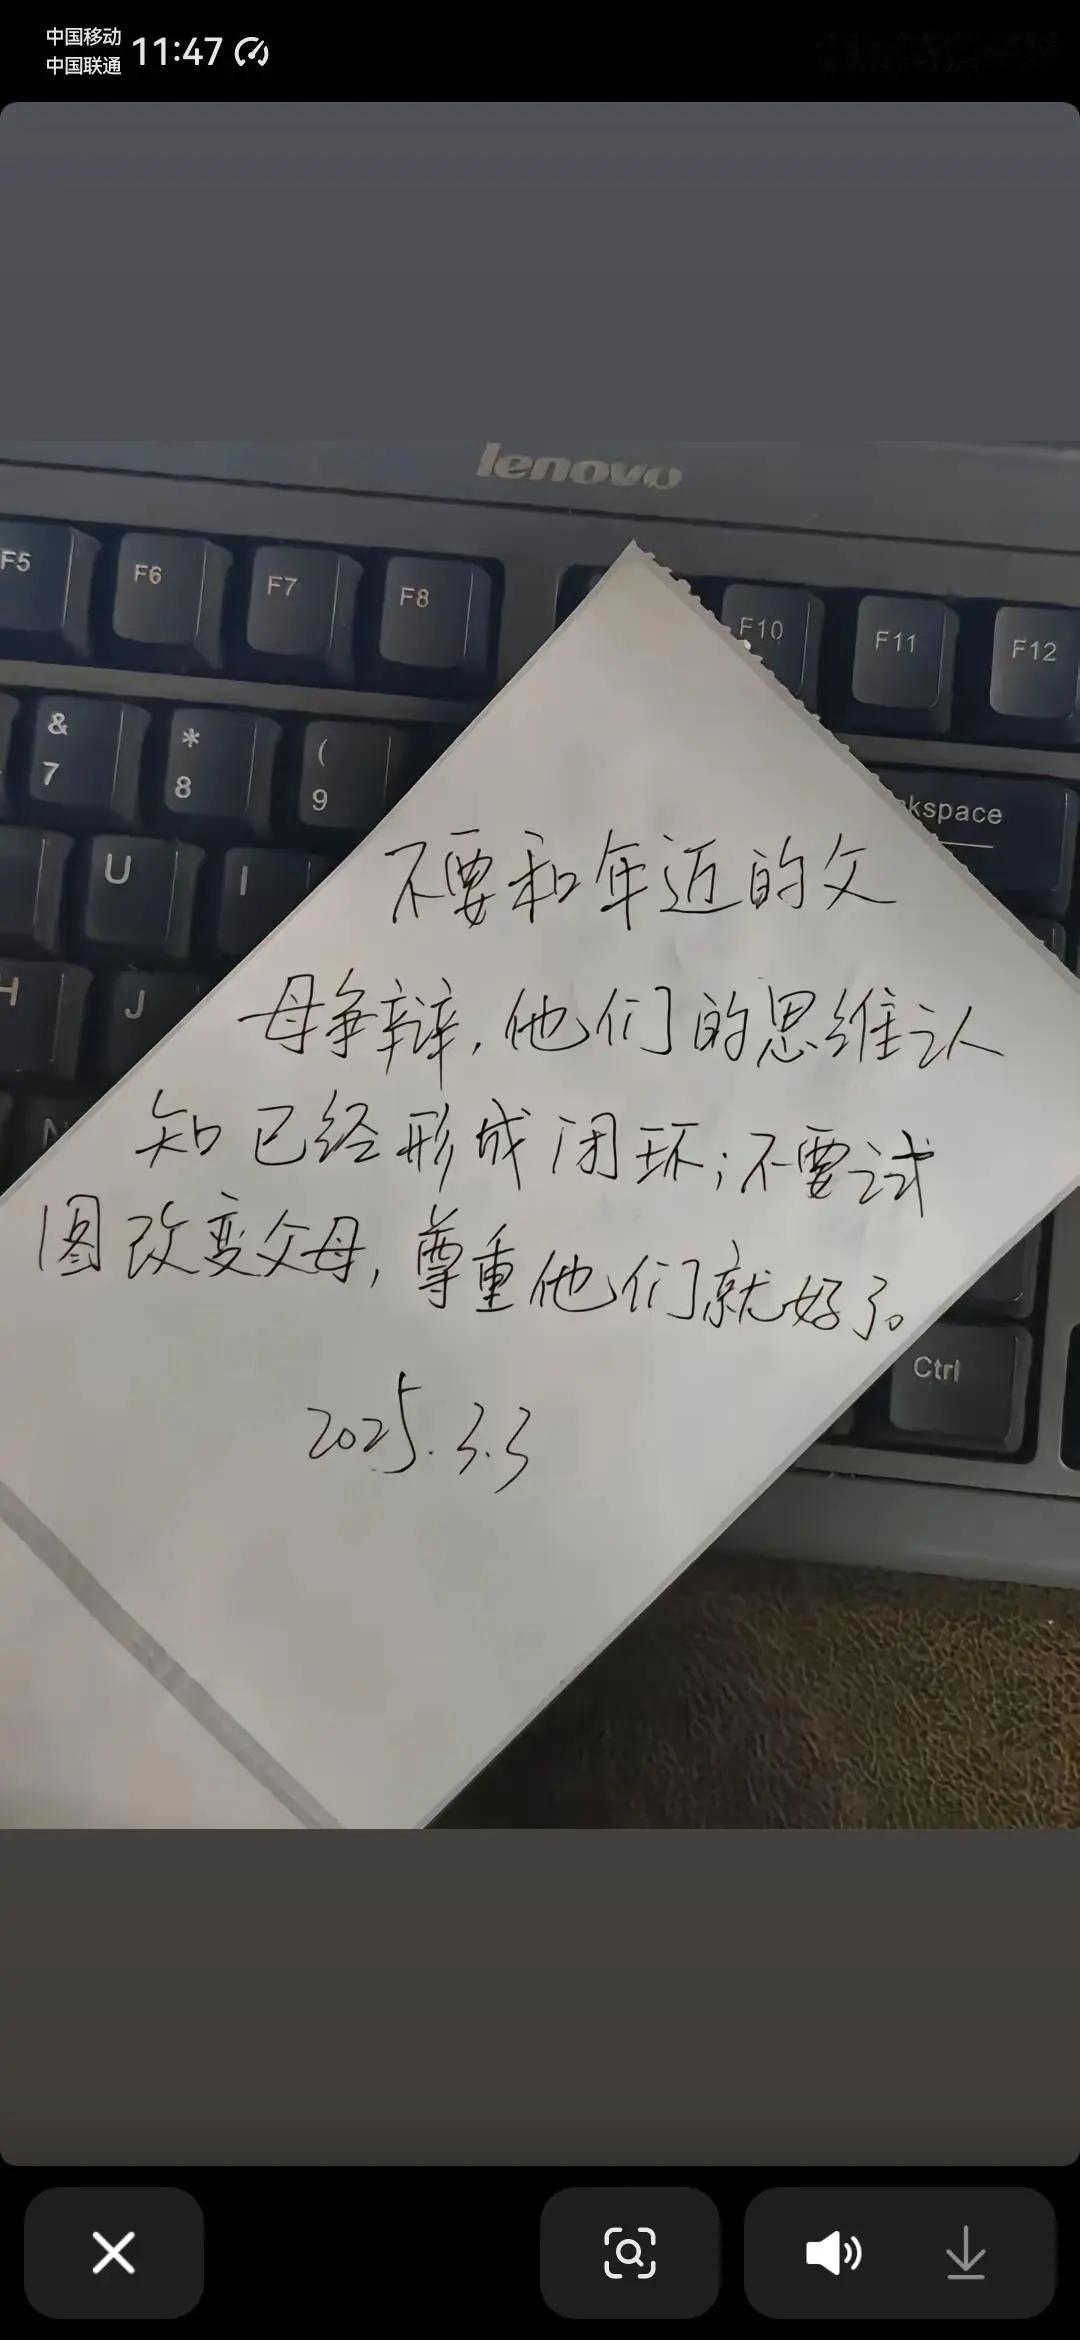 中国移动
中国联通
11:47
lenovo
F5
F6
F7
F8
F10
F11
F12
&
7
*
8
(
9
kspace
U
I
H
J
N
Ctrl
不要和年近的父
母争辩，他们的思维认
知已经形成闭环；不要试
图改变父母，尊重他们就好了。
2025.3.3